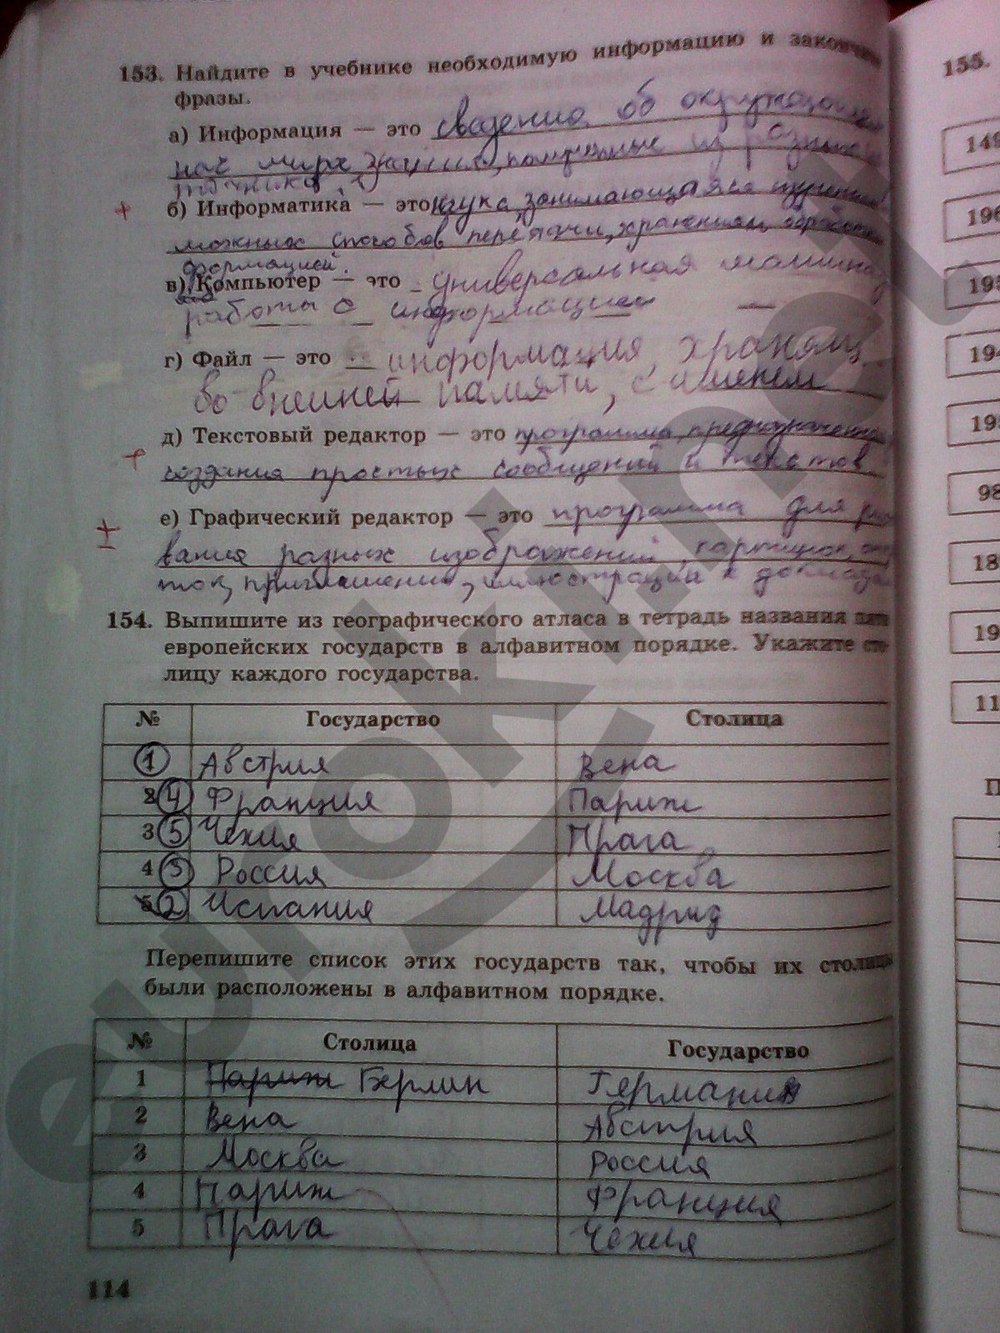 153. Найдите в учебнике необходимую информацию и закончите
фразы.
а) Информация — это сведения об окружающем
нас мире, знания, полученные из разных
б) Информатика — это наука, занимающаяся изучением
можных способов передачи, хранения, обработки
формацией.
в) Компьютер — это универсальная машина
работы с информацией
г) Файл — это информация, хранящ
во внешней памяти, с именем
д) Текстовый редактор — это программа, предназначенная
создания простых сообщений и текстов
е) Графический редактор — это программа для рисо
вания разных изображений, картинок, от
ток, приглашений, иллюстраций к докладам
154. Выпишите из географического атласа в тетрадь названия пяти
европейских государств в алфавитном порядке. Укажите сто-
лицу каждого государства.
№ Государство Столица
1 Австрия Вена
2 4 Франция Париж
3 5 Чехия Прага
4 3 Россия Москва
5 2 Испания Мадрид
Перепишите список этих государств так, чтобы их столицы
были расположены в алфавитном порядке.
№ Столица Государство
1 Париж Берлин Германия
2 Вена Австрия
3 Москва Россия
4 Париж Франция
5 Прага Чехия
114
155.
149
196
195
194
19
98
18
19
11
П
euroki.net